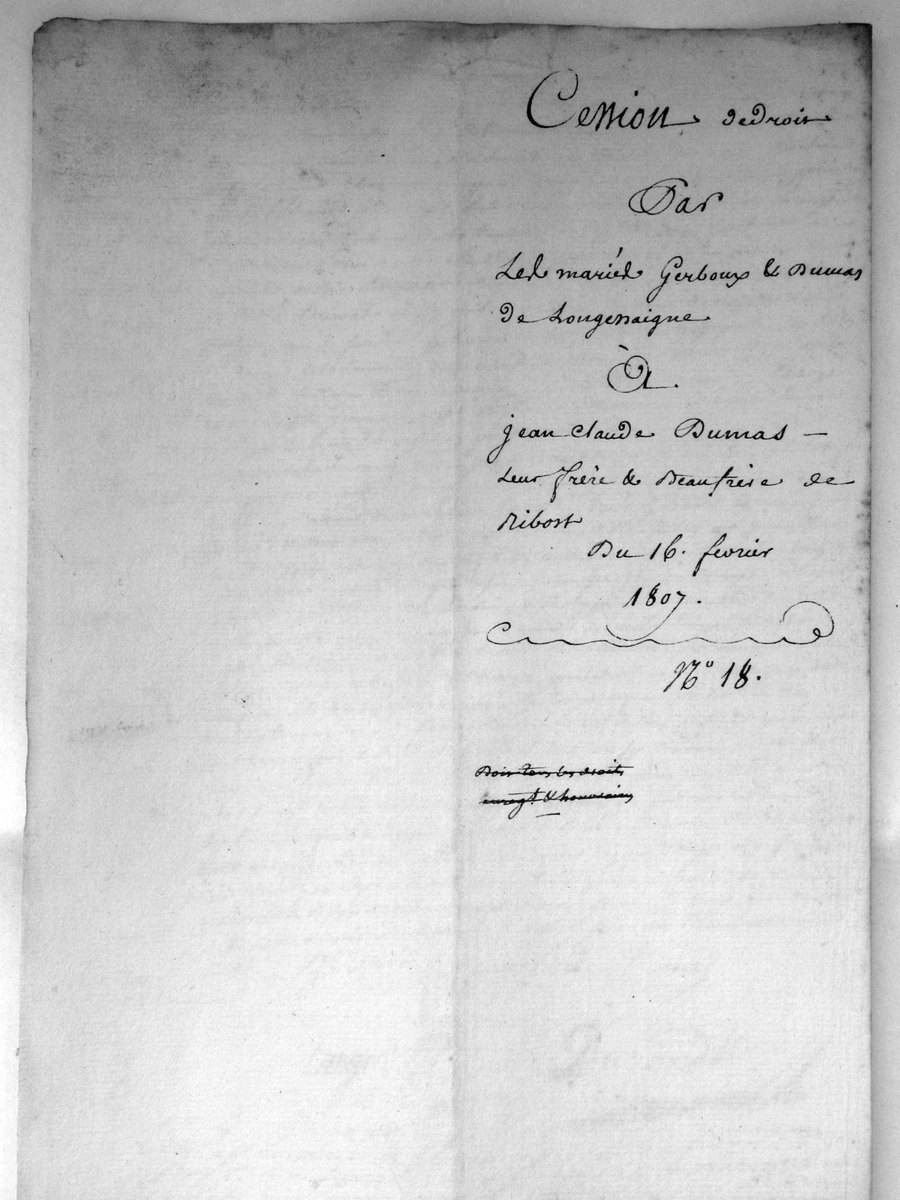 Cession de droit
Par
Les mariés Gerboux & Dumas
de Longessaigne
À
jean claude Dumas —
Leur frère & Beaufrère de
Ribost
Du 16. fevrier
1807.
N° 18.
Doit tous les droits
enregt. & honoraires